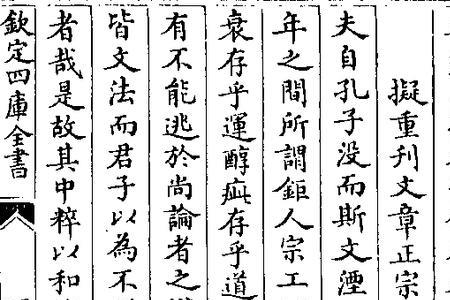 擬重刊文章正宗
夫自孔子没而斯文湮
年之間所謂鉅人宗工
衰存乎運醇疵存乎道
有不能逃於尚論者之
皆文法而君子以為不
者哉是故其中粹以和
欽定四庫全書